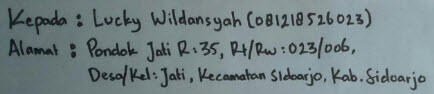 Kepada : Lucky Wildansyah (081218526023)
Alamat : Pondok Jati R:35, Rt/Rw : 023/006,
Desa/Kel: Jati, Kecamatan Sidoarjo, Kab. Sidoarjo